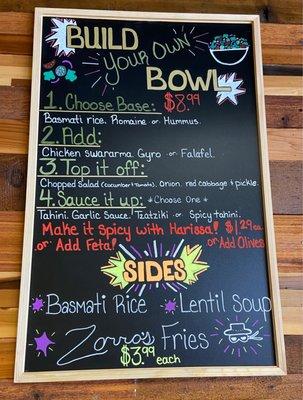 BUILD
Your OWN
BOWL
1. Choose Base: $8.99
Basmati rice. Romaine or Hummus.
2. Add:
Chicken swararma. Gyro or Falafel.
3. Top it off:
Chopped Salad (cucumber & tomato). Onion. red cabbage & pickle.
4. Sauce it up: *Choose One*
Tahini. Garlic Sauce. Tzatziki or Spicy tahini.
Make it Spicy with Harissa! $1.29 ea
or Add Feta! or Add Olives
SIDES
Basmati Rice
Lentil Soup
Zorro's Fries
$3.99 each